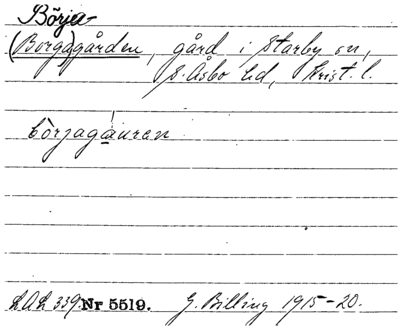 Börja-
(Borga)gården, gård i Starby sn,
S. Åsbo hd, Krist. l.
börjagåuren
LAL 339 Nr 5519. G. Billing 1915-20.